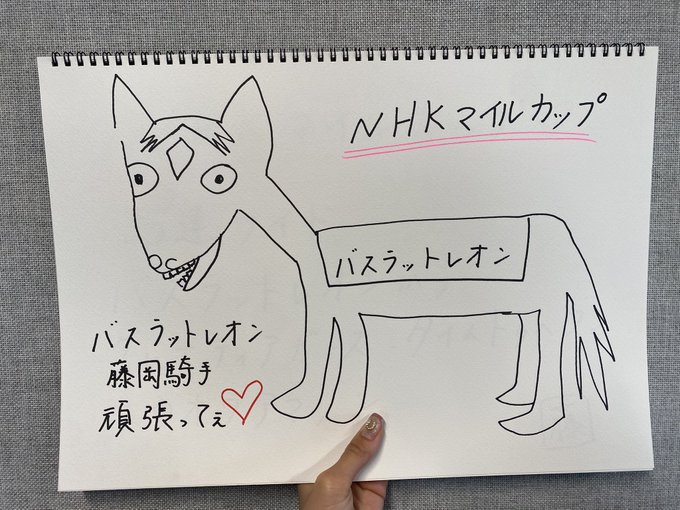 NHKマイルカップ
バスラットレオン
バスラットレオン
藤岡騎手
頑張ってぇ